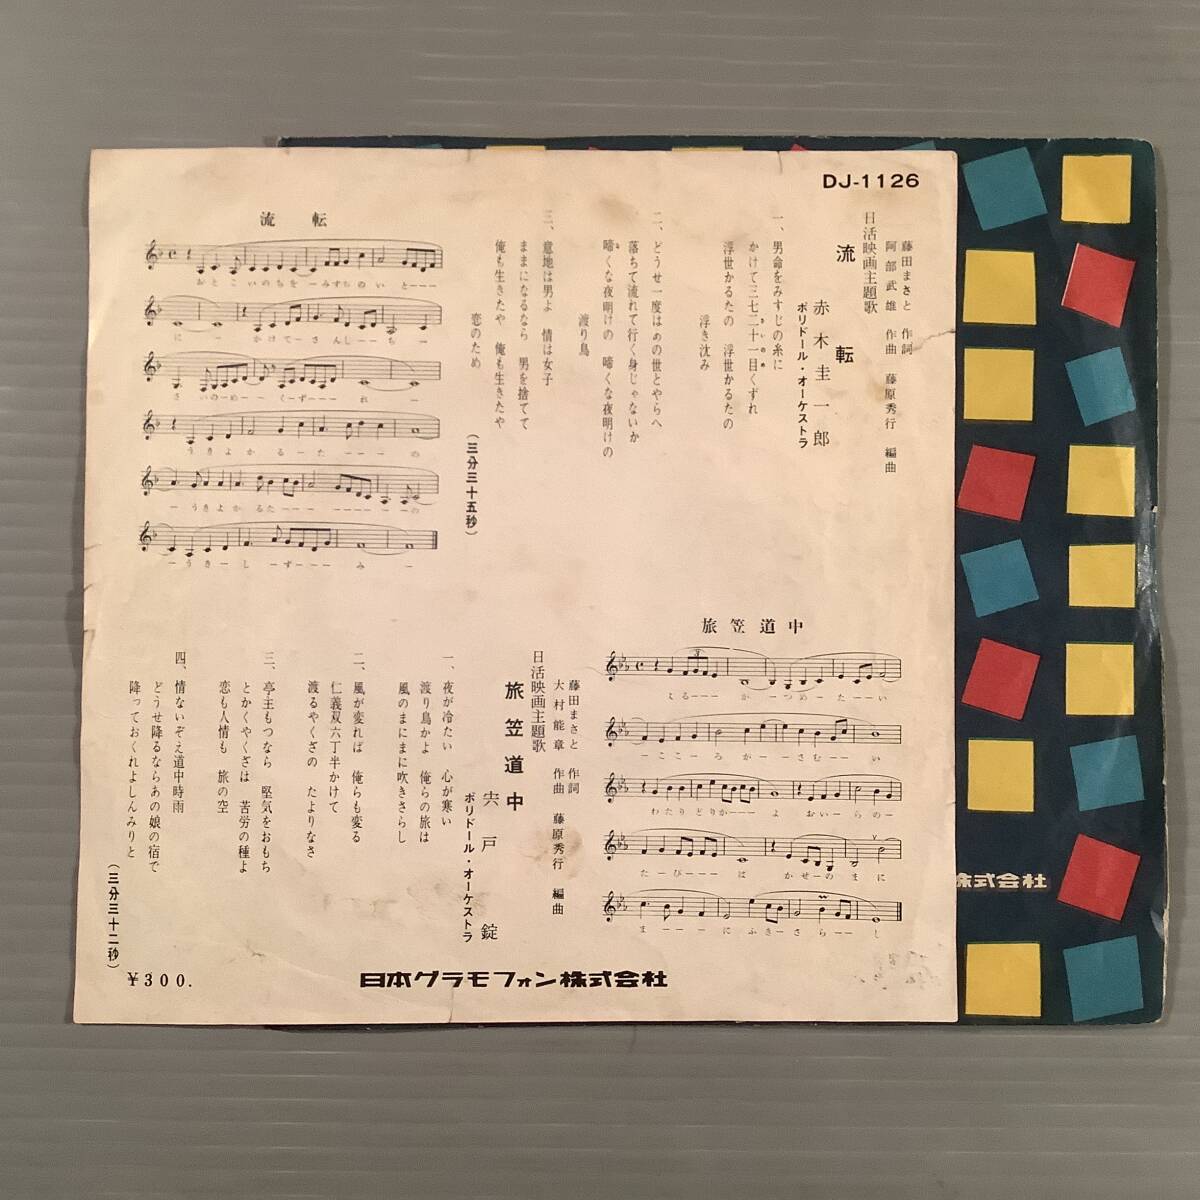 DJ-1126
日活映画主題歌
流転
藤田まさと 作詞
阿部武雄 作曲 藤原秀行 編曲
赤木圭一郎
ポリドール・オーケストラ
一、男命をみすじの糸に
かけて三七二十一目くずれ
浮世かるたの 浮世かるたの
浮き沈み
二、どうせ一度はあの世とやらへ
落ちて流れて行く身じゃないか
啼くな夜明けの 啼くな夜明けの
渡り鳥
三、意地は男よ 情は女子
ままになるなら 男を捨てて
俺も生きたや 俺も生きたや
恋のため
(三分三十五秒)
流転
おとこいのちを--みすじのい と---
に-- かけて-さんしち-
さいのめ--く-ず--れ-
うきよかるーた---の
-うきよかるた-------の
-うき-し-ず---み-
旅笠道中
よる--- か--つめ-た-い
-ここ-ろ が-さむ--い
わたりどりか---よ おい-らの-
た-び---は かぜ-のまに
ま---にふき-さら--し
日活映画主題歌
旅笠道中
藤田まさと 作詞
大村能章 作曲 藤原秀行 編曲
宍戸錠
ポリドール・オーケストラ
一、夜が冷たい 心が寒い
渡り鳥かよ 俺らの旅は
風のまにまに吹きさらし
二、風が変れば 俺らも変る
仁義双六丁半かけて
渡るやくざの たよりなさ
三、亭主もつなら 堅気をおもち
とかくやくざは 苦労の種よ
恋も人情も 旅の空
四、情ないぞえ道中時雨
どうせ降るならあの娘の宿で
降っておくれよしんみりと
(三分三十二秒)
¥300.
日本グラモフォン株式会社
株式会社